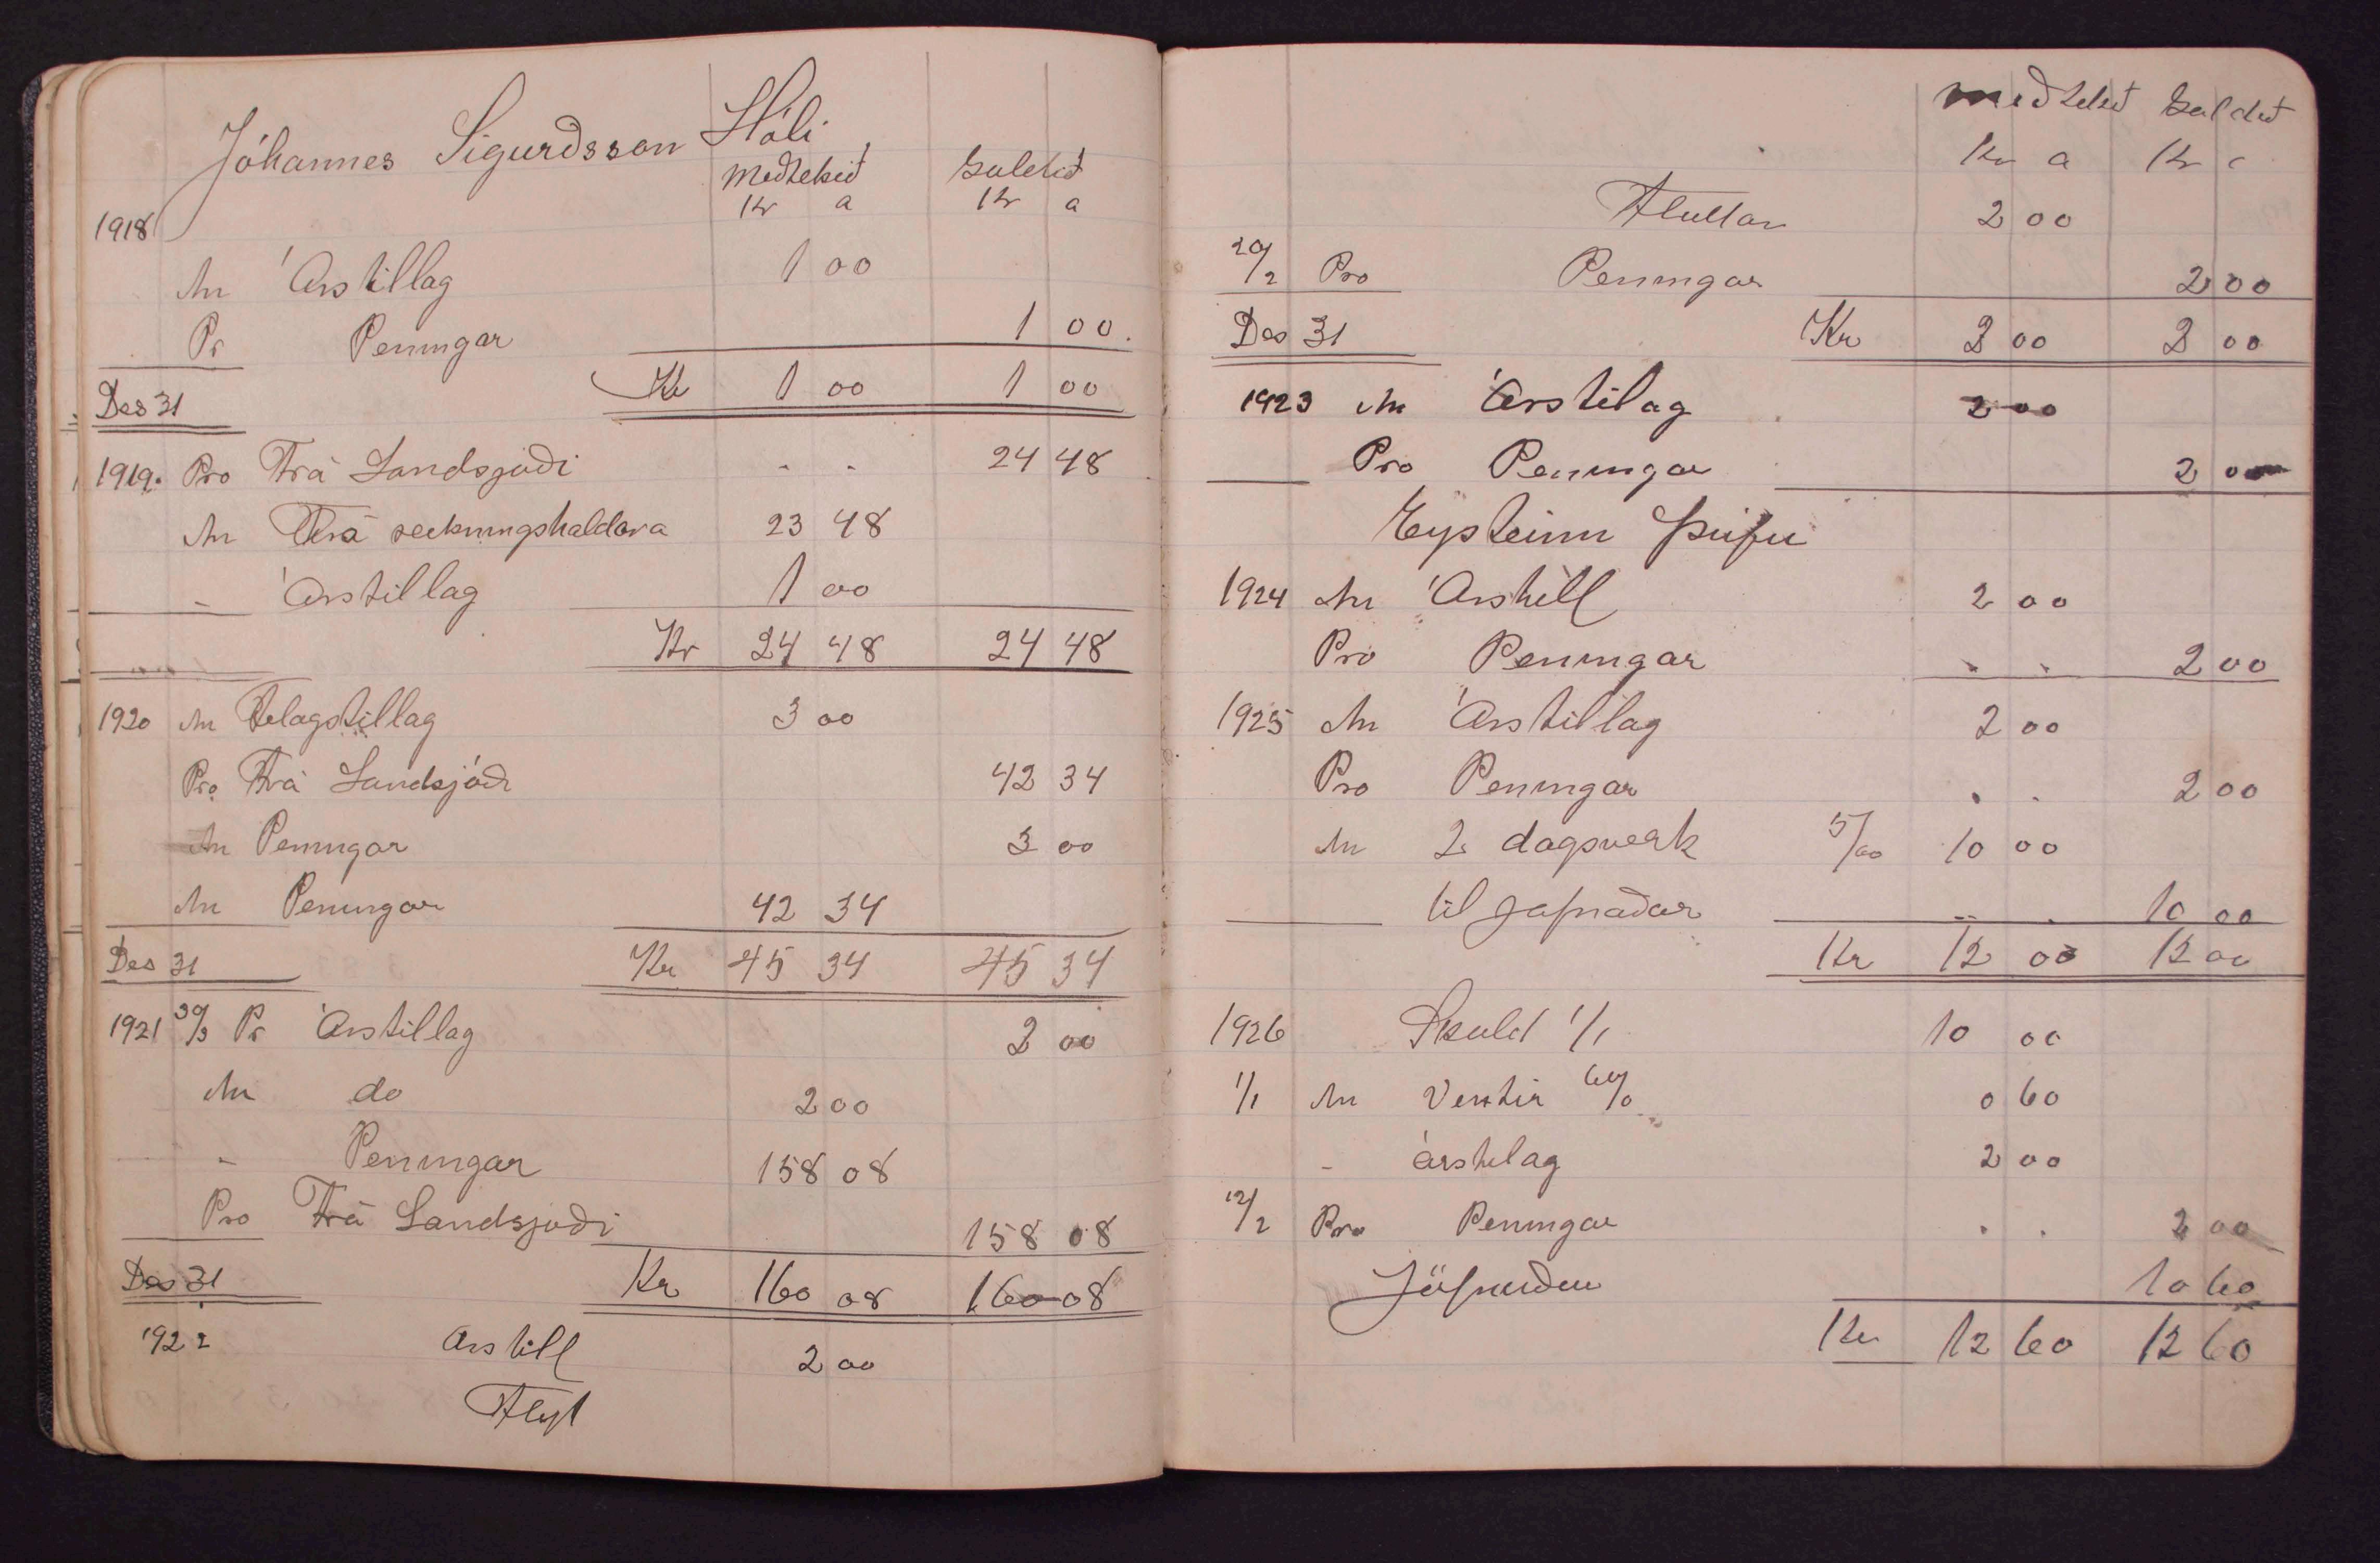 Jóhannes Sigurðsson Hóli
Meðtekið Goldið
Kr a Kr a
1918
An Árstillag 1 00
Pr Peningar 1 00
Des 31 Kr 1 00 1 00
1919. Pro Frá Landsjóði - - 24 48
An Frá reikningshaldara 23 48
- Árstillag 1 00
Kr 24 48 24 48
1920 An Felagstillag 3 00
Pro Frá Landsjóði 42 34
An Peningar 3 00
An Peningar 42 34
Des 31 Kr 45 34 45 34
1921 30/3 Pr Árstillag 2 00
An do 2 00
- Peningar 158 08
Pro Frá Landsjóði 158 08
Des 31 Kr 160 08 160 08
1922 Árstill 2 00
Flyt
meðtekið Goldið
Kr a Kr a
Fluttar 2 00
20/2 Pro Peningar 2 00
Des 31 Kr 2 00 2 00
1923 An Árstilag 2 00
Pro Peningar 2 00
Eysteinn Þúfu
1924 An Árstill 2 00
Pro Peningar - - 2 00
1925 An Árstillag 2 00
Pro Peningar . . 2 00
An 2 dagsverk 5/00 10 00
til jafnaðar - . 10 00
Kr 12 00 12 00
1926 Skuld 1/1 10 00
1/1 An Vextir 6% 0 60
- árstilag 2 00
12/2 Pro Peningar . . 2 00
Jöfnuður 10 60
Kr 12 60 12 60